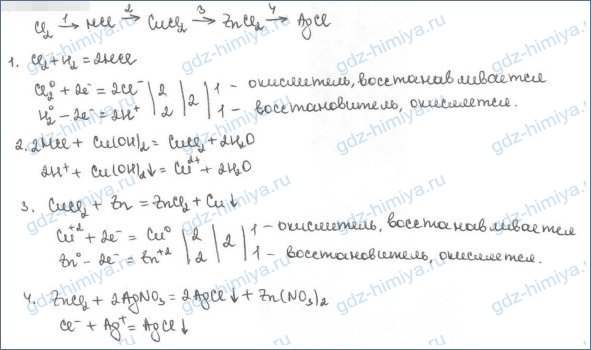 Cl₂ →¹ HCl →² CuCl₂ →³ ZnCl₂ →⁴ AgCl
1. Cl₂ + H₂ = 2HCl
Cl₂⁰ + 2e⁻ = 2Cl⁻ | 2 | 2 | 1 - окислитель, восстанавливается
H₂⁰ - 2e⁻ = 2H⁺ | 2 | | 1 - восстановитель, окисляется.
2. 2HCl + Cu(OH)₂ = CuCl₂ + 2H₂O
2H⁺ + Cu(OH)₂↓ = Cu²⁺ + 2H₂O
3. CuCl₂ + Zn = ZnCl₂ + Cu↓
Cu⁺² + 2e⁻ = Cu⁰ | 2 | 2 | 1 - окислитель, восстанавливается
Zn⁰ - 2e⁻ = Zn⁺² | 2 | | 1 - восстановитель, окисляется.
4. ZnCl₂ + 2AgNO₃ = 2AgCl↓ + Zn(NO₃)₂
Cl⁻ + Ag⁺ = AgCl↓
gdz-himiya.ru